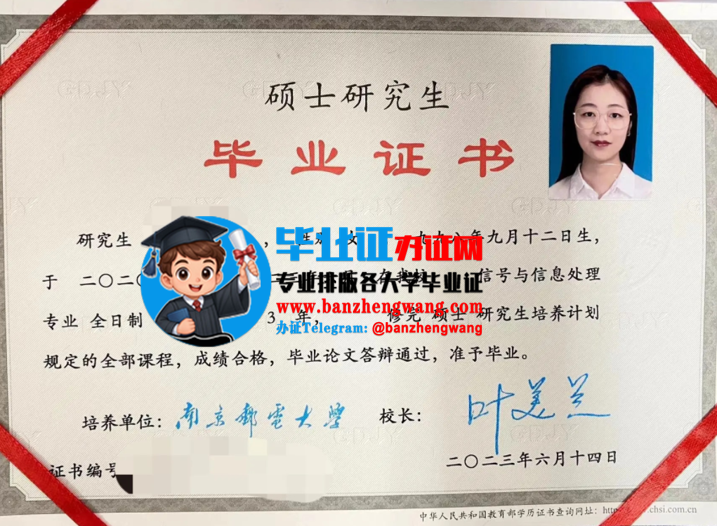 硕士研究生
毕业证书
研究生 性别 女 一九九八年九月十二日生,
毕业证办证网
于 二〇二〇 在我校 信号与信息处理
专业排版各大学毕业证
www.banzhengwang.com
专业 全日制 3 年, 修完 硕士 研究生培养计划
办证Telegram: @banzhengwang
规定的全部课程,成绩合格,毕业论文答辩通过,准予毕业。
培养单位: 南京邮电大学 校长: 叶美兰
证书编号 二〇二三年六月十四日
中华人民共和国教育部学历证书查询网址: chsi.com.cn
GDJY